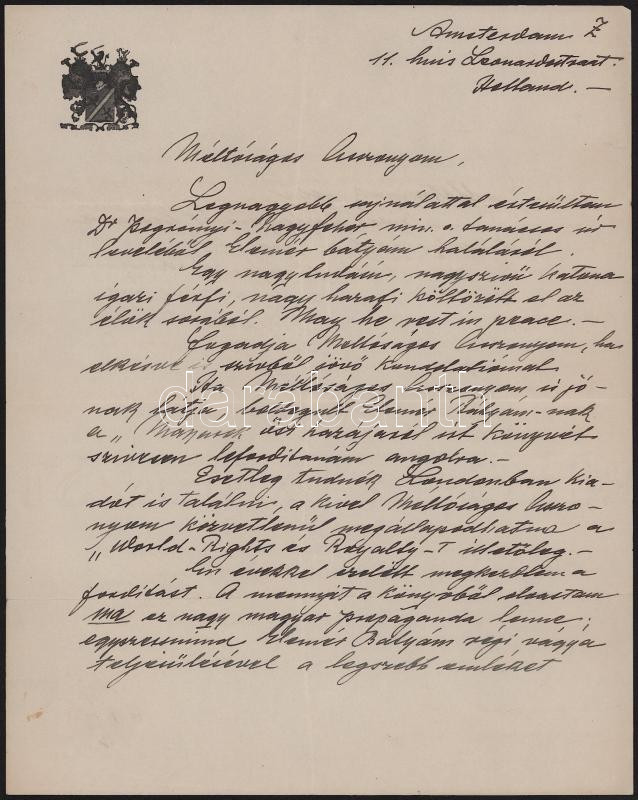 Amsterdam Z
11. huis Leonardostraat.
Holland. —
Méltóságos Asszonyom,
Legnagyobb sajnálattal értesültem
Dr Pogrányi-Nagyfehér min. o. tanácsos úr
leveléből Elemér bátyám haláláról.
Egy nagytudású, nagyszívű katona
igazi férfi, nagy hazafi költözött el az
élők sorából. May he rest in peace. —
Fogadja Méltóságos Asszonyom, ha
elkésve is szívből jövő kondoleációmat
Ha Méltóságos Asszonyom is jó-
nak látja boldogult Elemér Bátyám-nak
a „Magyarok ősi hazájáról írt könyvét
szívesen lefordítanám angolra. —
Esetleg tudnék Londonban kia-
dót is találni, a kivel Méltóságos Asszo-
nyom közvetlenül megállapodhatna a
„World-Rights és Royalty-t illetőleg. —
Én évekkel ezelőtt megkezdtem a
fordítást. A mennyit a könyvből olvastam
ma ez nagy magyar propaganda lenne;
egyszersmind Elemér Bátyám régi vágya
teljesülésével a legszebb emléket
darabanth